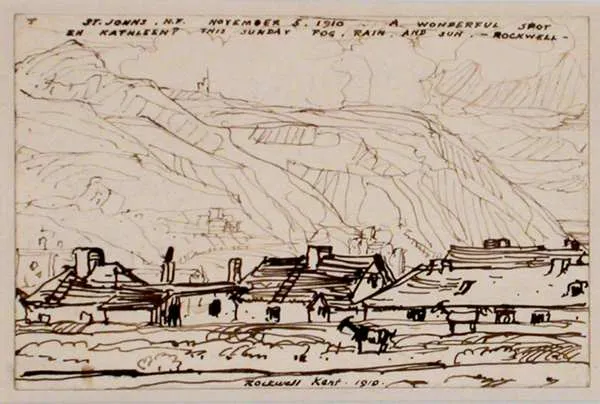 ST. JOHNS . N.F. NOVEMBER 5. 1910 - A WONDERFUL SPOT
EH KATHLEEN? THIS SUNDAY FOG. RAIN. AND SUN. - ROCKWELL -
Rockwell Kent. 1910.